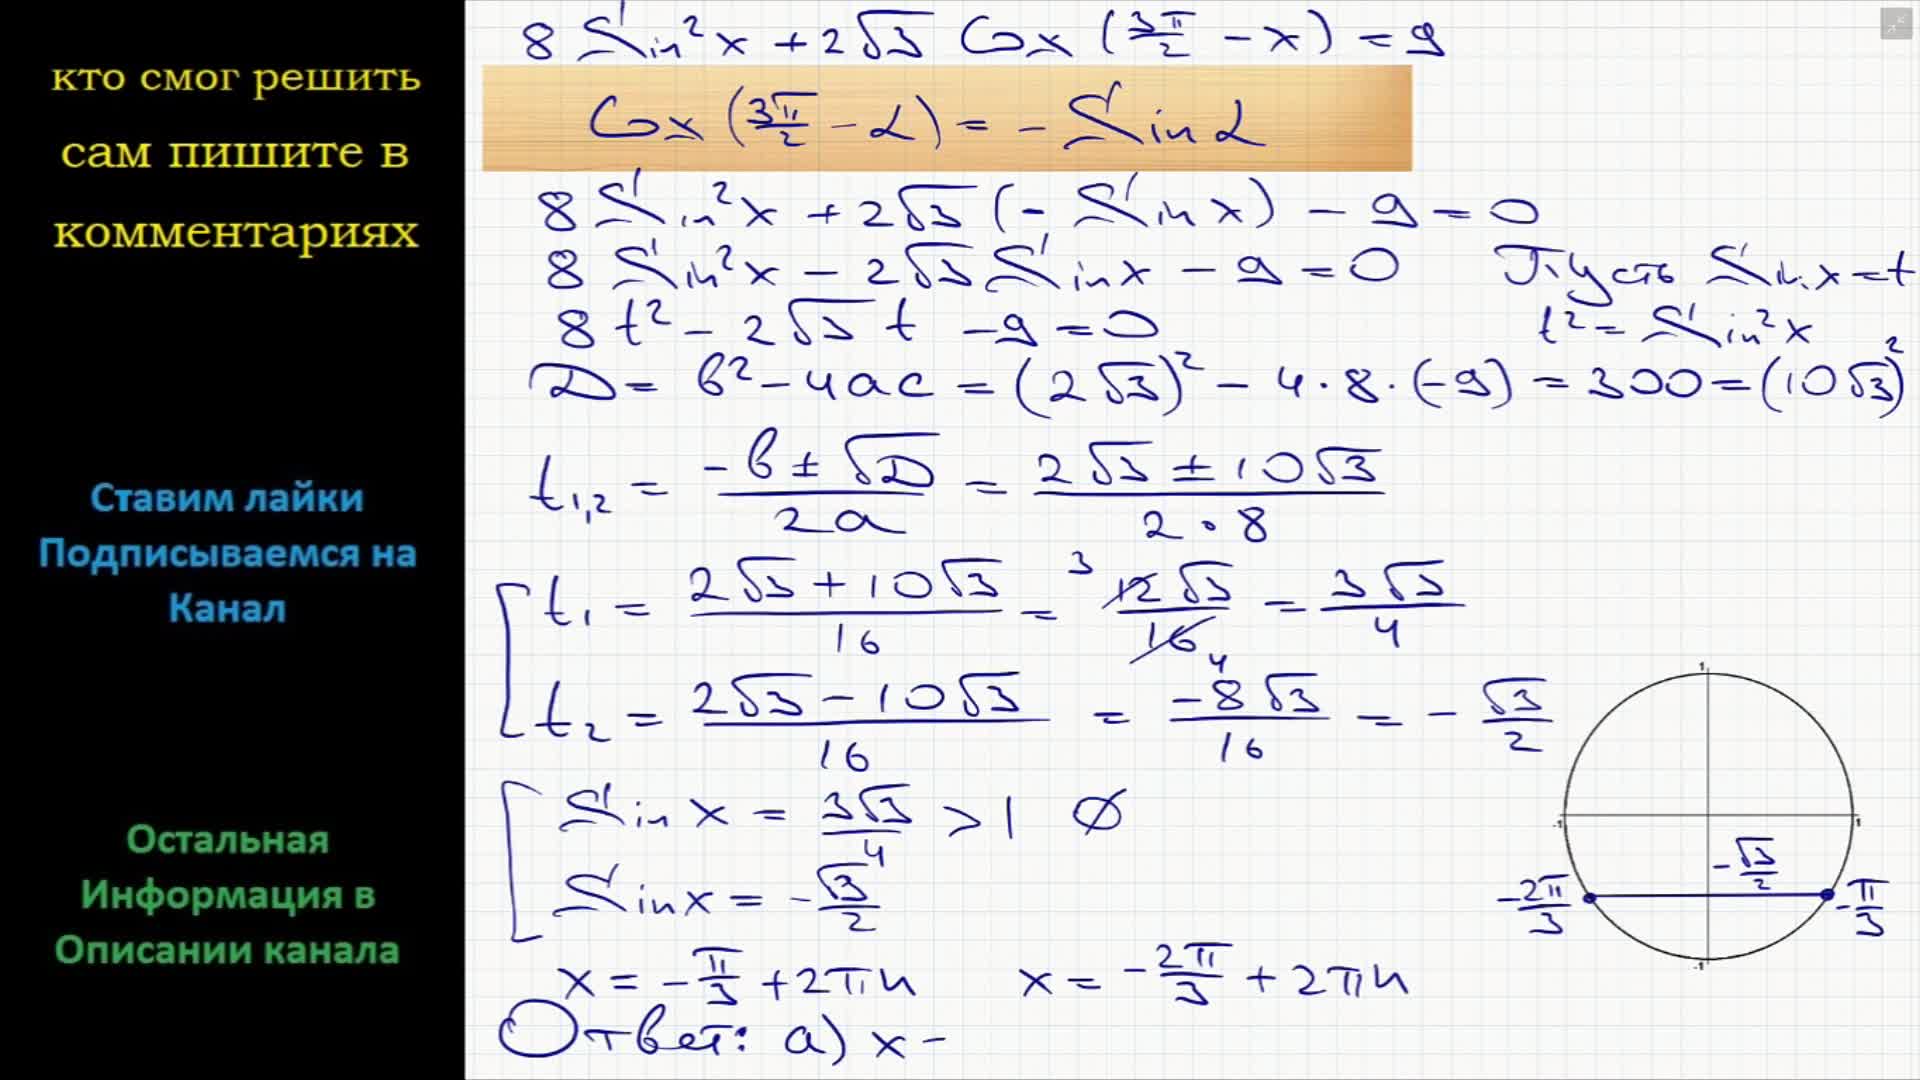 кто смог решить
сам пишите в
комментариях
Ставим лайки
Подписываемся на
Канал
Остальная
Информация в
Описании канала
8 Sin²x + 2√3 Cos (3π/2 - x) = 9
Cos (3π/2 - α) = - Sin α
8 Sin²x + 2√3 (- Sin x) - 9 = 0
8 Sin²x - 2√3 Sin x - 9 = 0 Пусть Sin x = t
8t² - 2√3 t - 9 = 0 t² = Sin²x
D = b² - 4ac = (2√3)² - 4·8·(-9) = 300 = (10√3)²
t₁,₂ = (-b ± √D)/(2a) = (2√3 ± 10√3)/(2·8)
t₁ = (2√3 + 10√3)/16 = 3 12√3/16 4 = 3√3/4
t₂ = (2√3 - 10√3)/16 = -8√3/16 = - √3/2
Sin x = 3√3/4 > 1 ∅
Sin x = - √3/2
x = - π/3 + 2πn x = - 2π/3 + 2πn
Ответ: а) x -
1
-1
1
- √3/2
- 2π/3
- π/3
-1